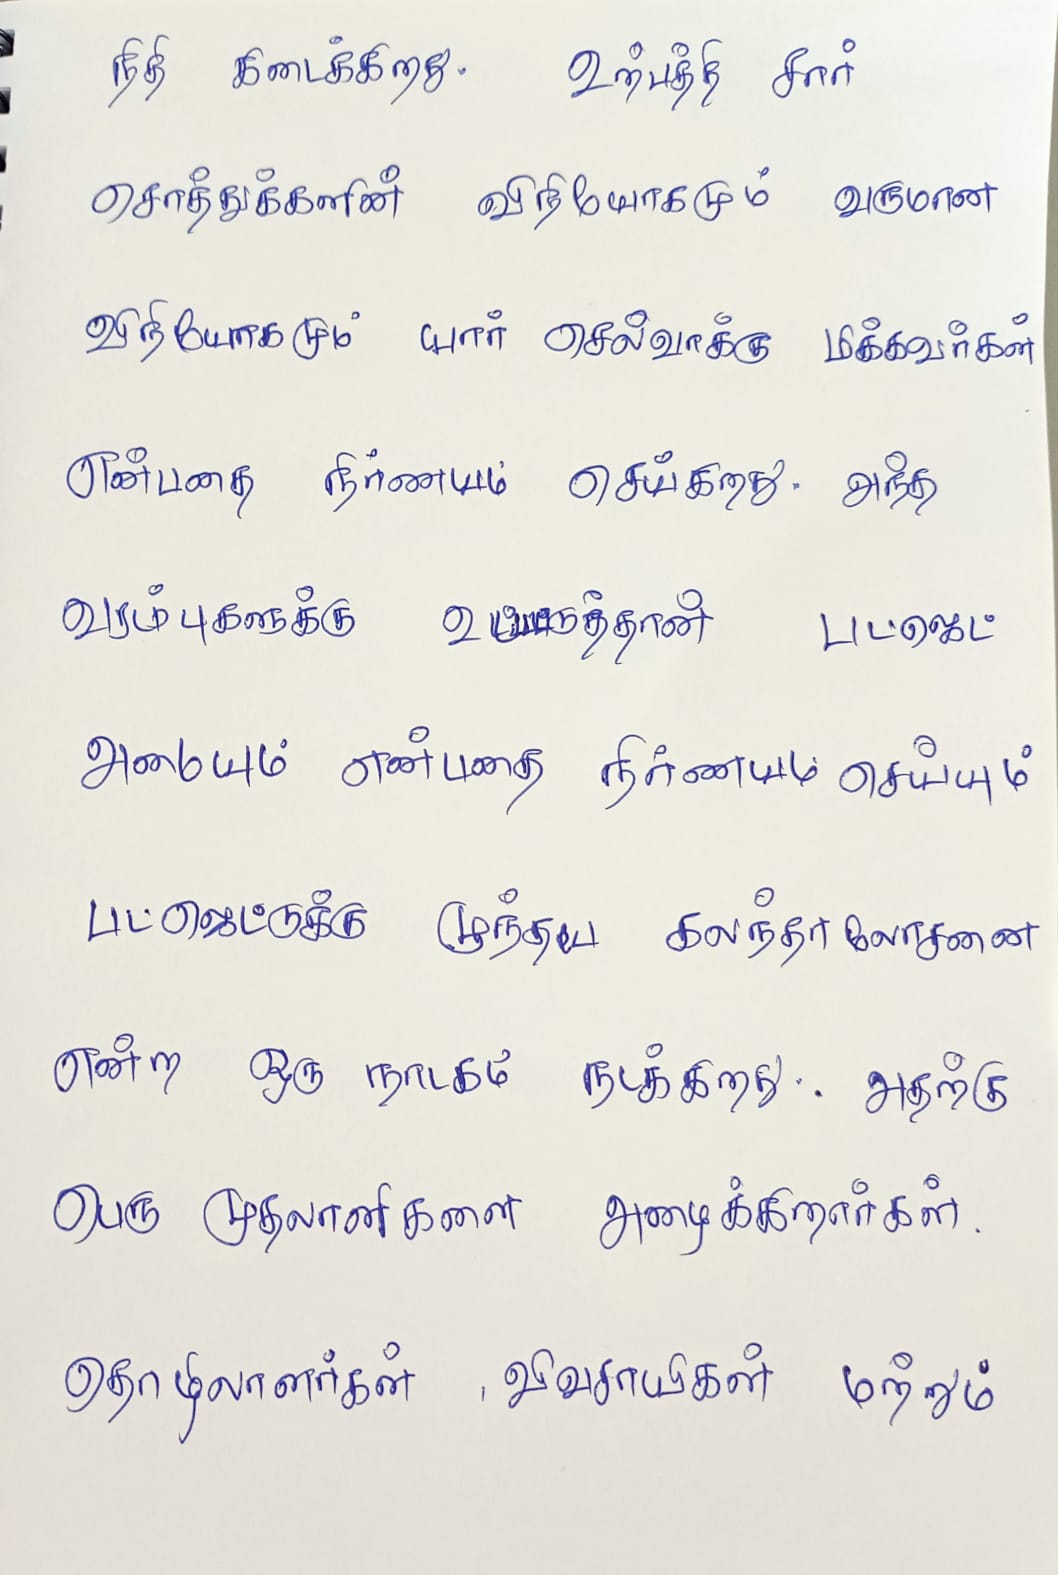 நிதி கிடைக்கிறது. உற்பத்தி சார்
சொத்துக்களின் விநியோகமும் வருமான
விநியோகமும் யார் செல்வாக்கு மிக்கவர்கள்
என்பதை நிர்ணயம் செய்கிறது. அந்த
வரம்புகளுக்கு பட்ஜெட்
அமையும் என்பதை நிர்ணயம் செய்யும்
பட்ஜெட்டுக்கு முந்தய கலந்தாலோசனை
என்ற ஒரு நாடகம் நடக்கிறது. அதற்கு
பெரு முதலாளிகளை அழைக்கிறார்கள்.
தொழிலாளர்கள் , விவசாயிகள் மற்றும்